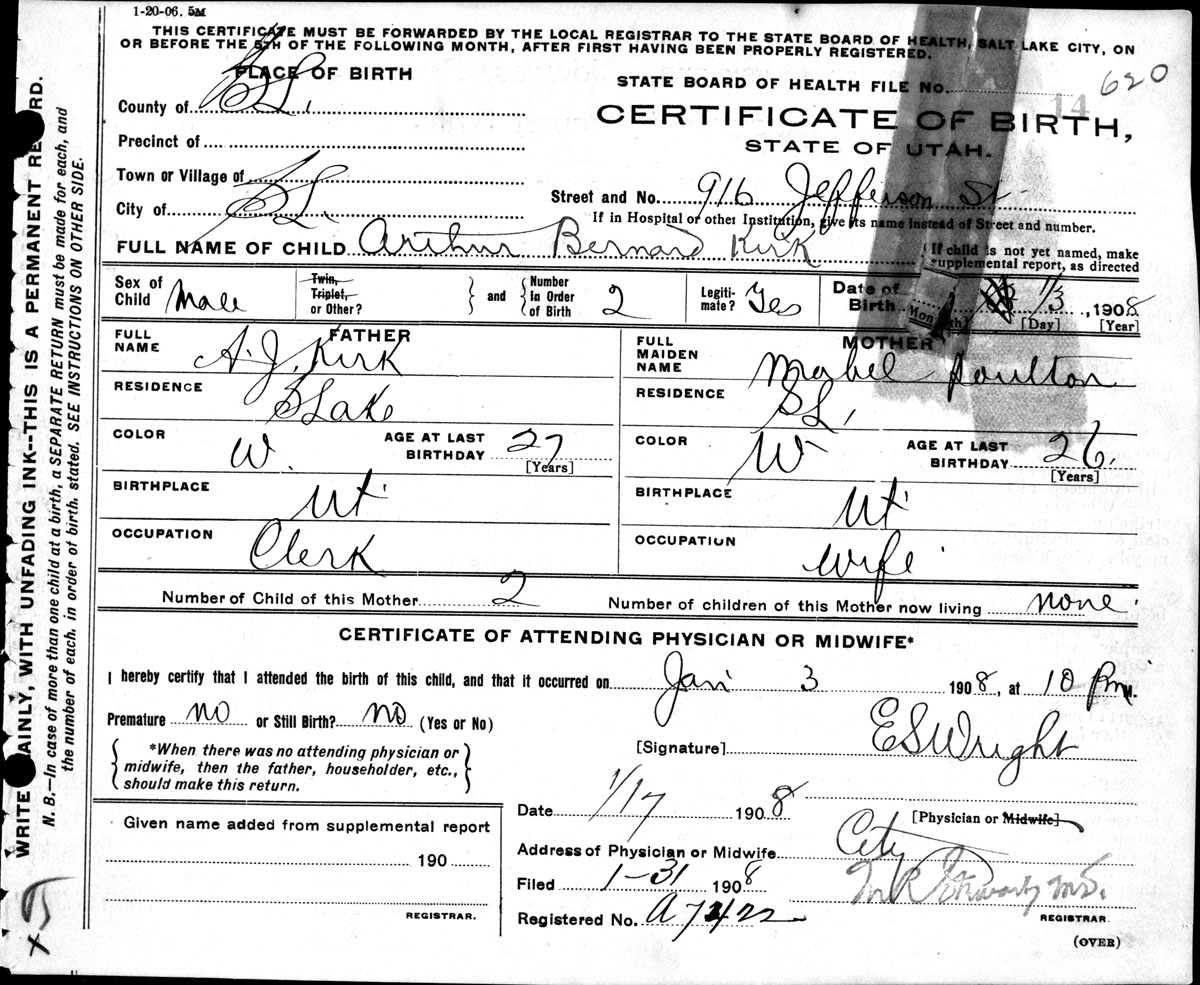 1-20-06. 5M
THIS CERTIFICATE MUST BE FORWARDED BY THE LOCAL REGISTRAR TO THE STATE BOARD OF HEALTH, SALT LAKE CITY, ON
OR BEFORE THE 5TH OF THE FOLLOWING MONTH, AFTER FIRST HAVING BEEN PROPERLY REGISTERED.
PLACE OF BIRTH
STATE BOARD OF HEALTH FILE No. 14 620
County of S L.
CERTIFICATE OF BIRTH,
Precinct of
STATE OF UTAH.
Town or Village of
Street and No. 916 Jefferson St
City of S L.
If in Hospital or other Institution, give its name instead of Street and number.
FULL NAME OF CHILD Arthur Bernard Kirk
If child is not yet named, make
supplemental report, as directed
Sex of Child Male
Twin, Triplet, or Other?
and Number in Order of Birth 2
Legiti-mate? Yes
Date of Birth 1/3, 1908
[Month] [Day] [Year]
FATHER
FULL NAME A. J. Kirk
RESIDENCE S Lake
COLOR W. AGE AT LAST BIRTHDAY 27 [Years]
BIRTHPLACE Ut
OCCUPATION Clerk
MOTHER
FULL MAIDEN NAME Mabel Poulton
RESIDENCE S L.
COLOR W AGE AT LAST BIRTHDAY 26 [Years]
BIRTHPLACE Ut
OCCUPATION Wife
Number of Child of this Mother 2 Number of children of this Mother now living none
CERTIFICATE OF ATTENDING PHYSICIAN OR MIDWIFE*
I hereby certify that I attended the birth of this child, and that it occurred on Jan 3 1908, at 10 PM.
Premature no or Still Birth? no (Yes or No)
*When there was no attending physician or
midwife, then the father, householder, etc.,
should make this return.
[Signature] E S Wright
Date 1/17 1908
[Physician or Midwife]
Address of Physician or Midwife City
Filed 1-31 1908
Registered No. A 7422
REGISTRAR.
(OVER)
Given name added from supplemental report
190
REGISTRAR.
WRITE AINLY, WITH UNFADING INK--THIS IS A PERMANENT RE RD.
N. B.—In case of more than one child at a birth, a SEPARATE RETURN must be made for each, and
the number of each, in order of birth, stated. SEE INSTRUCTIONS ON OTHER SIDE.